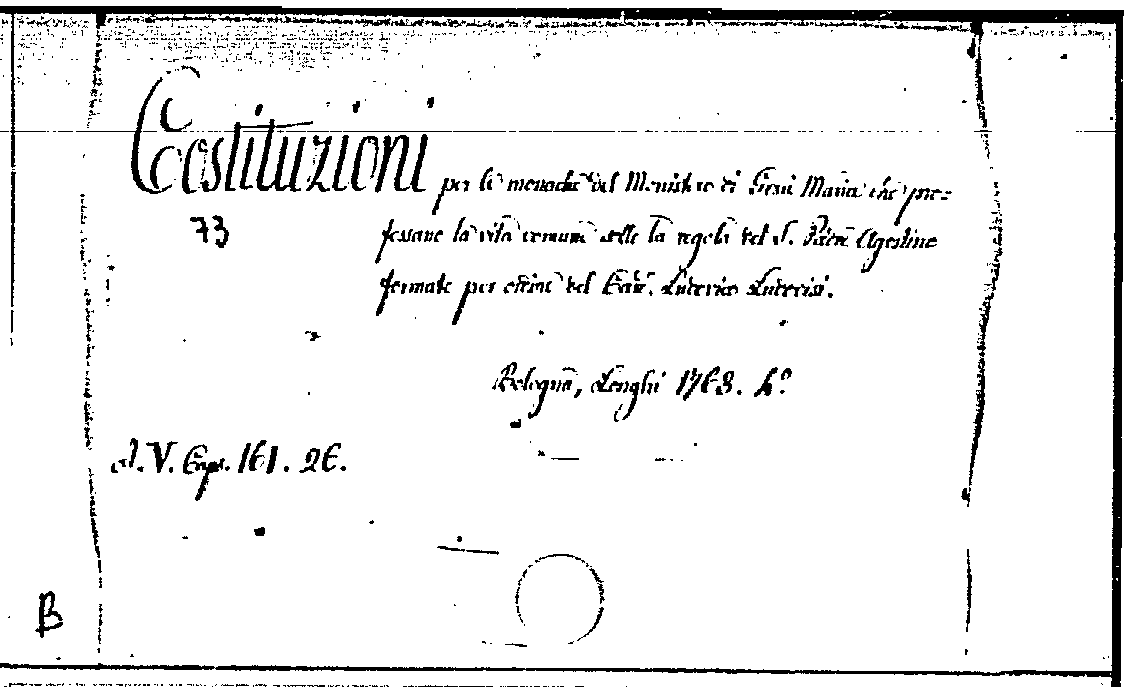 Costituzioni per le monache del Monistero di Gesù Maria che pro-
73
fessano la vita comune sotto la regola del S. Padre Agostino
formate per ordine del Card. Luderico Luderisi.
Bologna, Longhi 1768. 4.º
A. V. Caps. 161. 26.
B